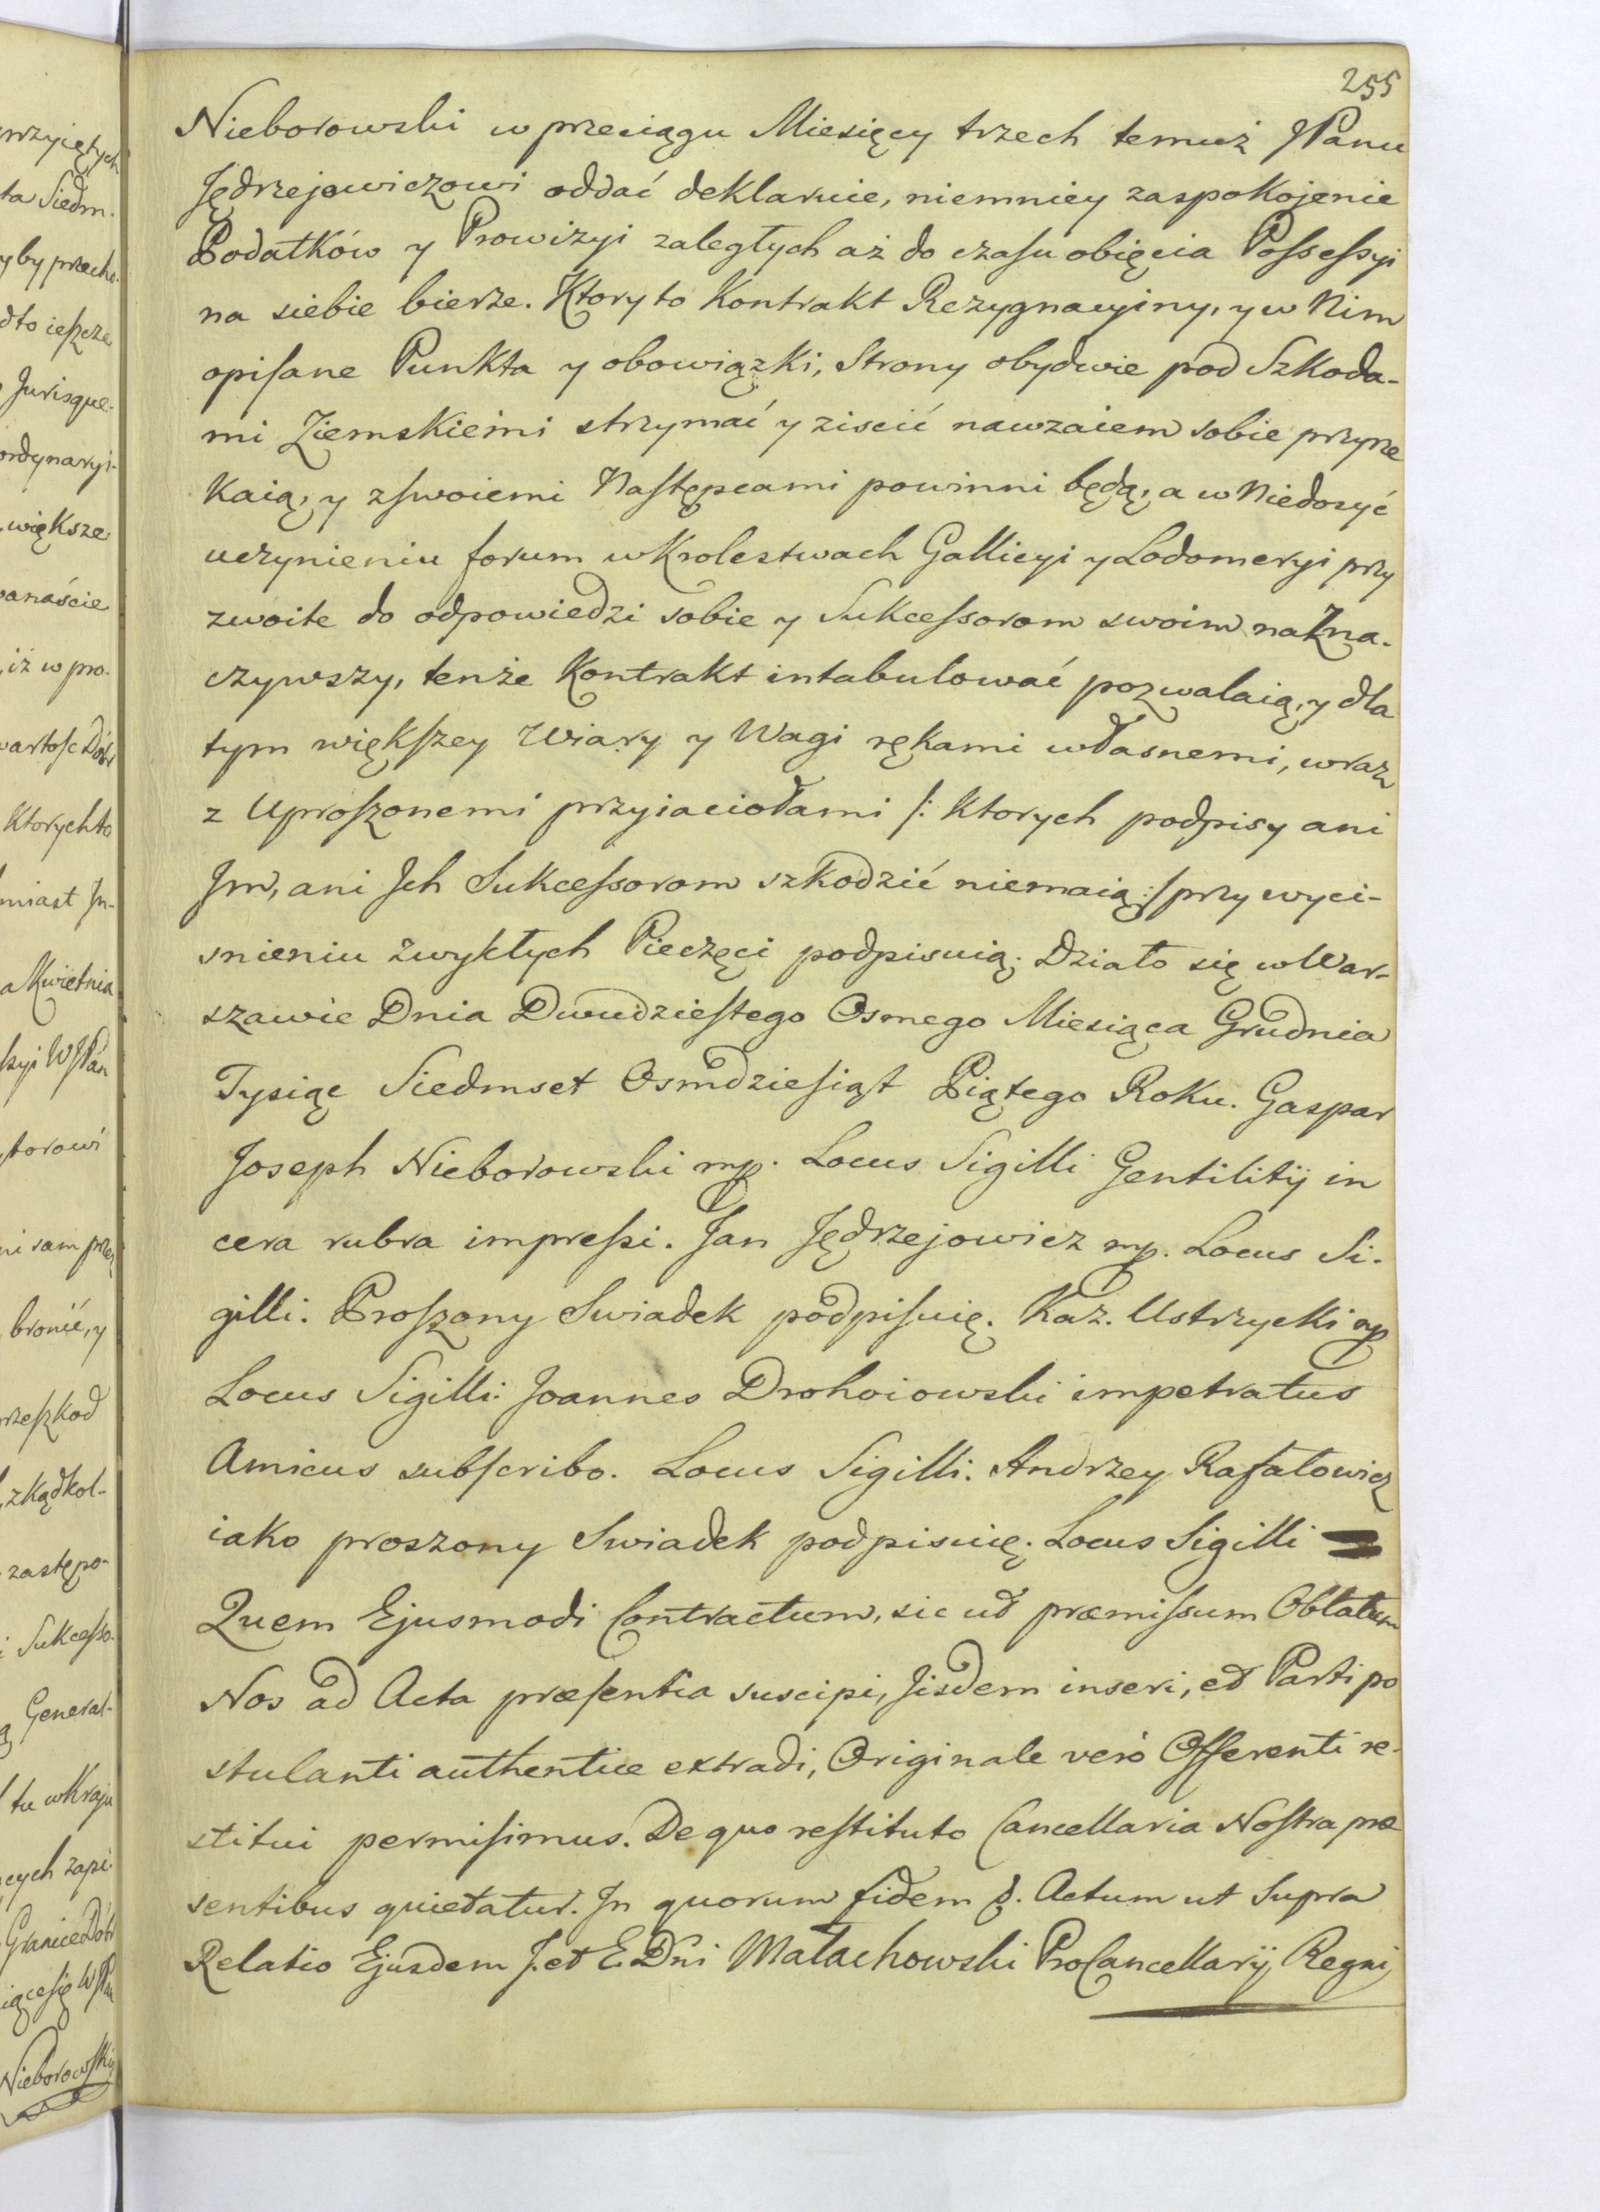 255
Nieborowski w przeciągu Miesięcy trzech temuż JPanu
Jędrzejowiczowi oddać deklaruie, niemniey zaspokojenie
Podatków y Prowizyi zaległych aż do czasu obięcia Possessyi
na siebie bierze. Ktory to Kontrakt Rezygnacyiny, y w Nim
opisane Punkta y obowiązki, Strony obydwie pod Szkoda-
mi Ziemskiemi strzymać y ziscić nawzaiem sobie przyrze
kaią, y z swoiemi Następcami powinni będą, a w Niedosyć
uczynieniu forum w Krolestwach Gallicyi y Lodomeryi przy
zwoite do odpowiedzi sobie y Sukcessorom swoim nazna-
czywszy, tenże Kontrakt intabulować pozwalaią, y dla
tym większey Wiary y Wagi rękami własnemi, wraz
z Uproszonemi przyiaciołami /: Ktorych podpisy ani
Jm, ani Jch Sukcessorom szkodzić niemaią :/ przy wyci-
snieniu zwykłych Pieczęci podpisuią. Działo się w War-
szawie Dnia Dwudziestego Osmego Miesiąca Grudnia
Tysiąc Siedmset Osmdziesiąt Piątego Roku. Gaspar
Joseph Nieborowski mp. Locus Sigilli Gentilitij in
cera rubra impressi. Jan Jędrzejowicz mp. Locus Si-
gilli. Proszony Swiadek podpisuię. Kaz. Ustrzycki mp
Locus Sigilli: Joannes Drohoiowski impetratus
Amicus subscribo. Locus Sigilli. Andrzey Rafałowicz
iako proszony Swiadek podpisuię. Locus Sigilli
Quem Ejusmodi Contractum, sic ut præmissum Oblatum
Nos ad Acta præsentia suscipi, Jisdem inseri, et Parti po
stulanti authentice extradi, Originale verò Offerenti re-
stitui permisimus. De quo restituto Cancellaria Nostra præ
sentibus quietatur. In quorum fidem &. Actum ut Supra
Relatio Ejusdem J. et E. Dni Małachowski ProCancellarij Regni